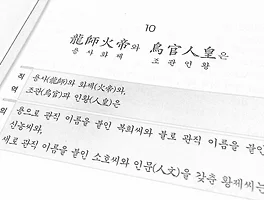 10
龍師火帝와 鳥官人皇은
용사화제 조관인황
용사(龍師)와 화제(火帝)와,
조관(鳥官)과 인황(人皇)은
용으로 관직 이름을 붙인 복희씨와 불로 관직 이름을 붙인
신농씨와,
새로 관직 이름을 붙인 소호씨와 인문(人文)을 갖춘 황제씨는